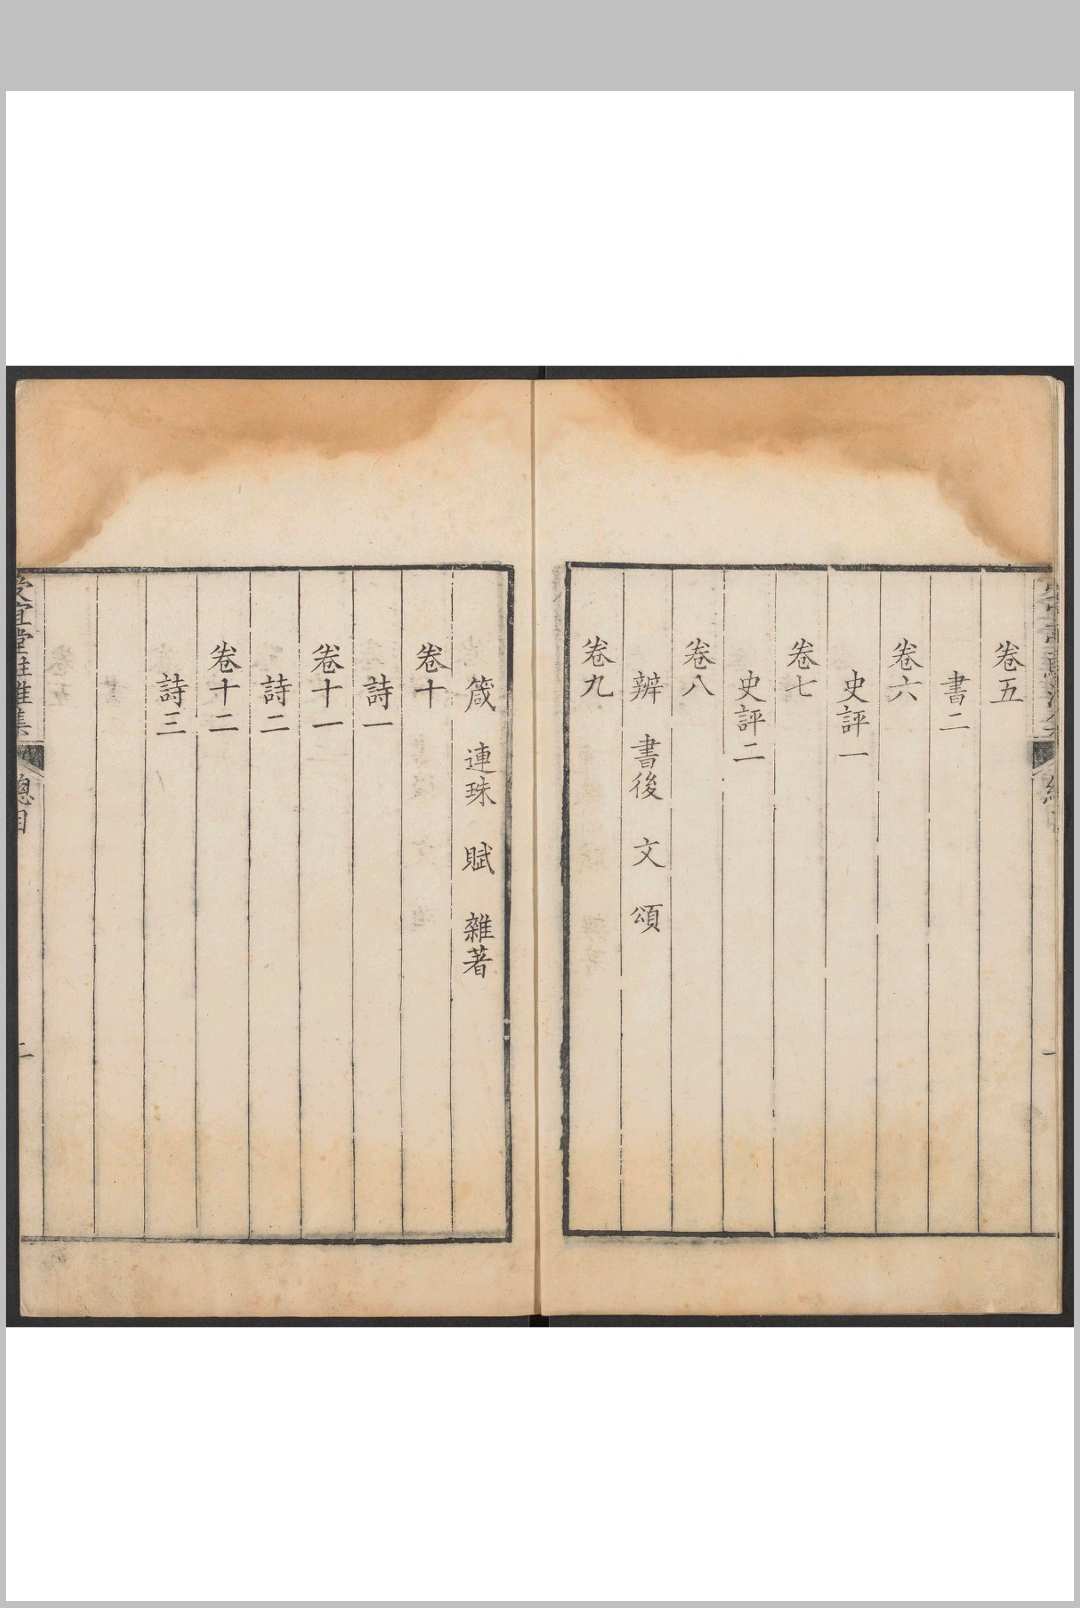 卷五
書二
卷六
史評一
卷七
史評二
卷八
辨 書後 文 頌
卷九
箴 連珠 賦 雜著
卷十
詩一
卷十一
詩二
卷十二
詩三
宜堂
集
總目
二